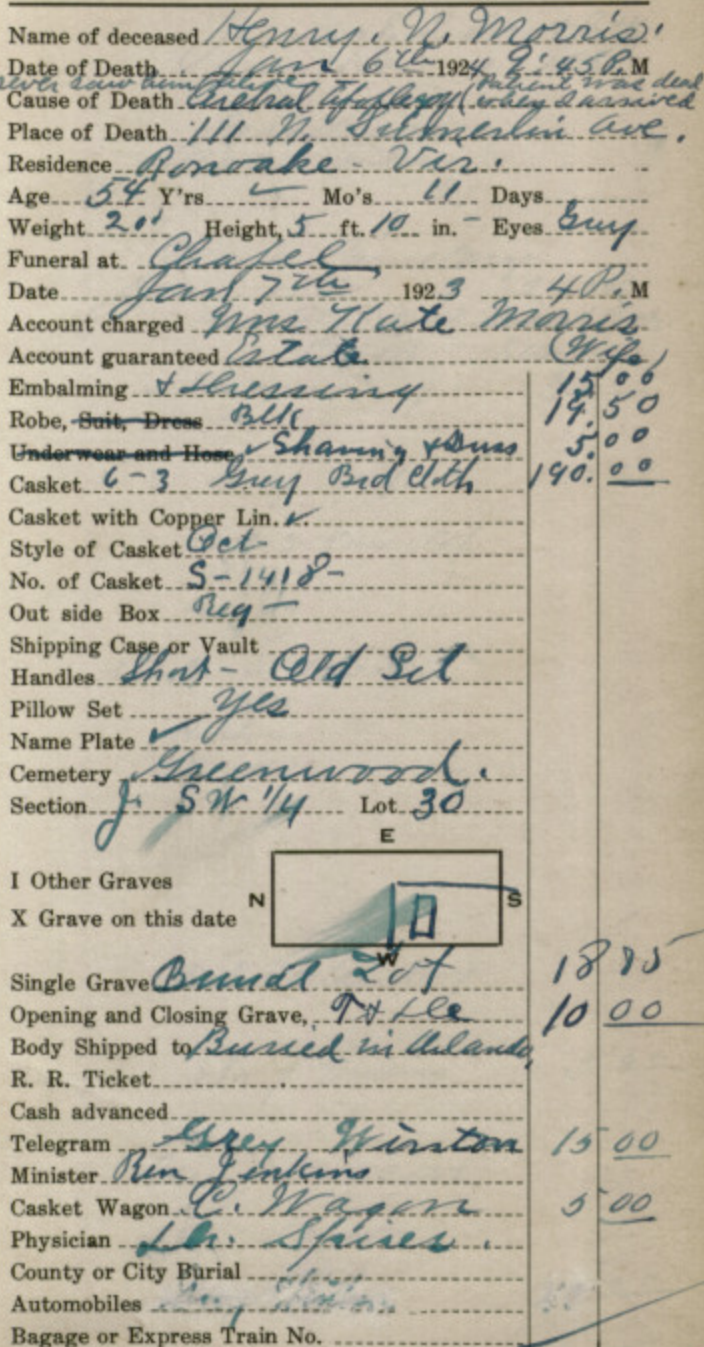 Name of deceased Henry. N. Morris.
Date of Death Jan 6th 1924 9:45 P. M
never saw him alive (Patient was dead
Cause of Death Cerebral Apoplexy when I arrived
Place of Death 111 N. Summerlin Ave.
Residence Ronoake - Vir.
Age 54 Y'rs ✓ Mo's 11 Days
Weight 20 Height, 5 ft. 10 in. - Eyes Grey
Funeral at Chapel
Date Jan 7th 1923 4 P. M
Account charged Mrs. Kate Morris
Account guaranteed Estate (Wife)
Embalming & Dressing 15 00
Robe, Suit, Dress Blk 14. 50
Underwear and Hose ✓ Shaving & Duss 5. 00
Casket 6-3 Grey Brd Clth 190. 00
Casket with Copper Lin. ✓.
Style of Casket Oct
No. of Casket S-1418-
Out side Box Reg -
Shipping Case or Vault
Handles Short - Old Set
Pillow Set yes
Name Plate ✓
Cemetery Greenwood.
Section J. SW 1/4 Lot 30
E
I Other Graves
N S
X Grave on this date
W
Single Grave Burial Lot 18 85
Opening and Closing Grave, 10 00
Body Shipped to Buried in Orlando,
R. R. Ticket
Cash advanced
Telegram Grey Winston 15 00
Minister Ren Jenkins
Casket Wagon C. Wagon 5 00
Physician Dr. Spiers.
County or City Burial
Automobiles
Bagage or Express Train No.